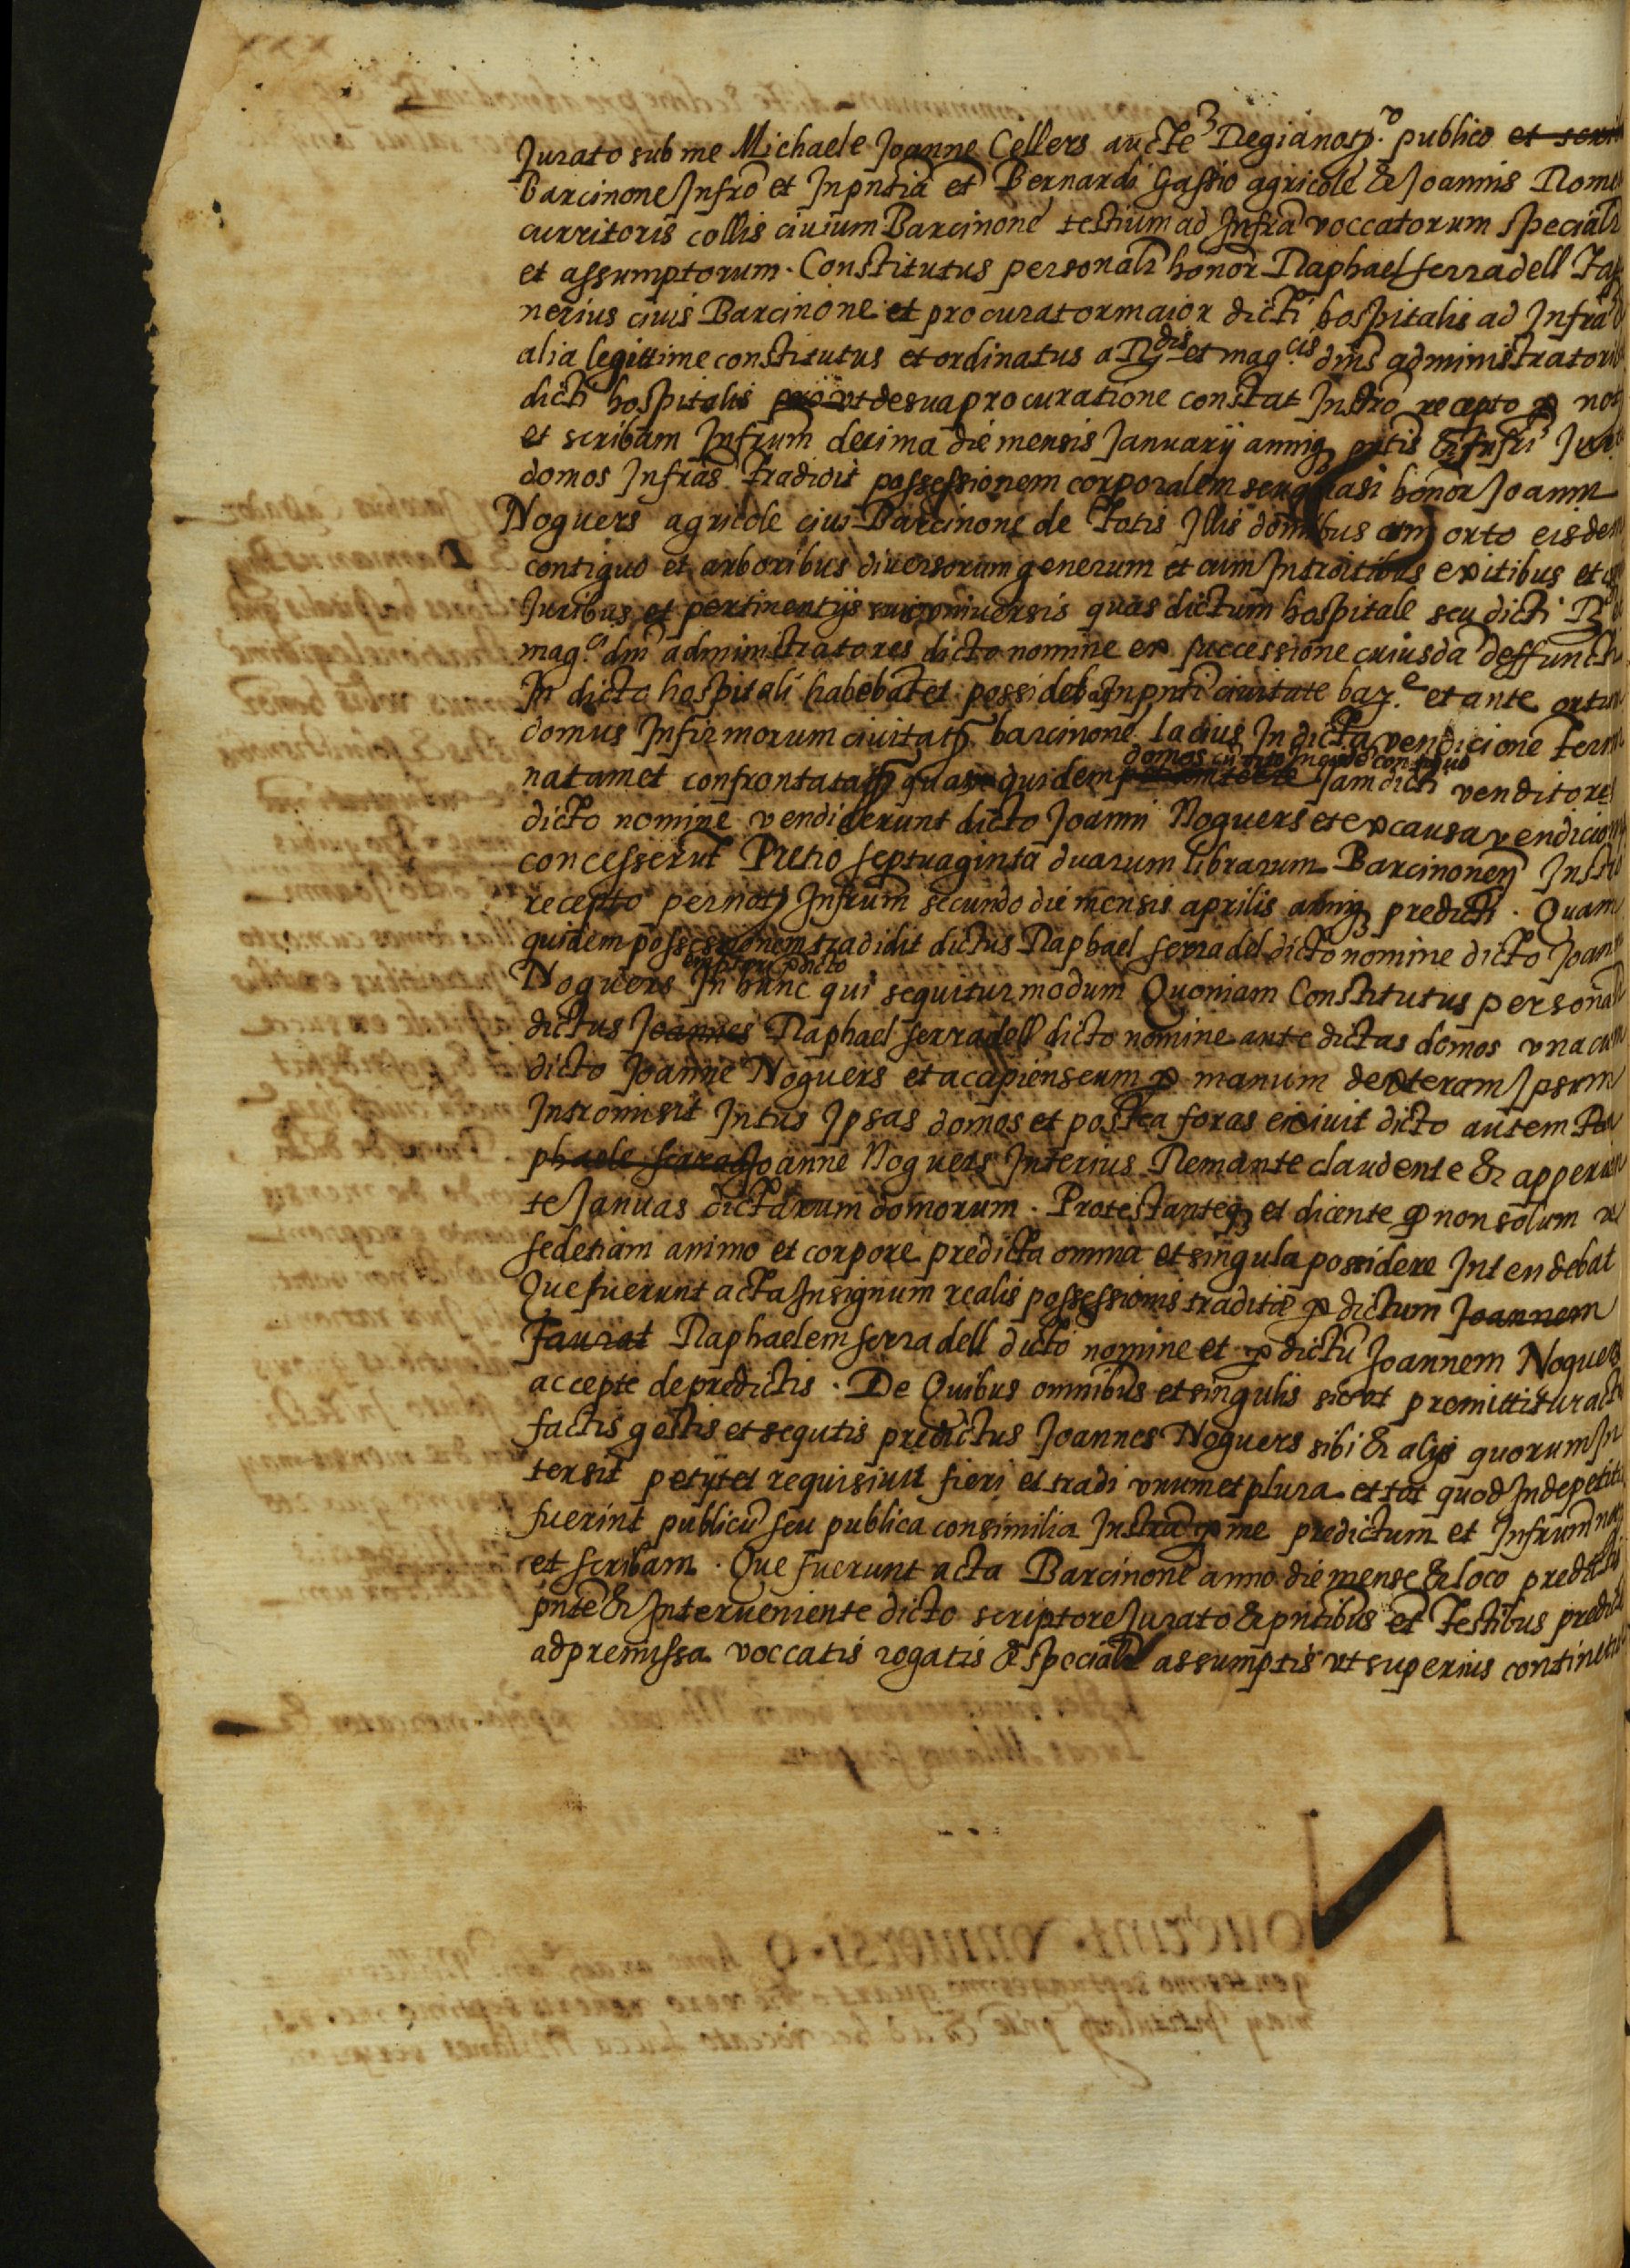 Jurato sub me Michaele Joanne Cellers aucte Regia noty.º publico et scrib
Barcinone Infro et Inpntia et Bernardi Gassio agricole & Joannis Rome
curritoris collis ciuium Barcinone testium ad Infra voccatorum speciali
et assumptorum. Constitutus personalr honor Raphael serradell
nerius ciuis Barcinone et procurator maior dicti hospitalis ad Infra
alia legittime constitutus et ordinatus a Rdis et mag.cis dnis administratori
dicti hospitalis pro vt de sua procuratione constat Instro recepto p not
et scribam Infrum decima die mensis Januarij anniq pntis & Infri
domos Infras tradidit possessionem corporalem seu quasi honor Joanni
Noguers agricole ciui Barcinone de Totis Illis domibus cum orto eisdem
contiguo et arboribus diuersorum generum et cum Introitibus exitibus et
Juribus et pertinentijs suis vniuersis quas dictum hospitale seu dicti R
mag.ci dni administratores dicto nomine ex successione cuiusda deffuncti
In dicto hospitali habebat et possidebat Inpnti ciuitate bar.e et ante ortum
domus Infirmorum ciuitatis barcinone ladius In dicta vendicione termi
domos cu orto Inqude contiguo
natam et confrontatas quas quidem Jam dicti venditores
dicto nomine vendiderunt dicto Joanni Noguers et ex causa vendicionis
concesserut Pretio septuaginta duarum librarum Barcinonen Instro
recepto per noty Infrum secundo die mensis aprilis anniq predicti. Quam
quidem possessionem tradidit dictus Raphael serradel dicto nomine dicto Joann
emptori pdicto
Noguers In hunc qui sequitur modum Quoniam Constitutus personalr
dictus Joannes Raphael serradell dicto nomine ante dictas domos vna cum
dicto Joanne Noguers et acapiens eum p manum dexteram Ipsum
Intromisit Intus Ipsas domos et postea foras exiuit dicto autem Ra
phaele Joanne Noguers Interius Remante claudente & apperien
te Januas dictarum domorum. Protestanteq et dicente q non solum
sed etiam animo et corpore predicta omnia et singula possidere Intendebat
Que fuerunt acta Insignum realis possessionis tradite p dictum Joannem
Raphaelem serradell dicto nomine et p dictu Joannem Noguers
accepte de predictis. De Quibus omnibus et singulis sicut premittitur acti
factis gestis et sequtis predictus Joannes Noguers sibi & alijs quorum In
tersit petijt et requisiuit fieri et tradi vnum et plura et tot quod Inde petita
fuerint publicu seu publica consimilia Instra p me predictum et Infrum not
et scribam. Que fuerunt acta Barcinone anno die mense & loco predictis
pnte & Interueniente dicto scriptore Jurato & pntibus et Testibus predictis
ad premissa voccatis rogatis & specialr assumptis vt superius continetur